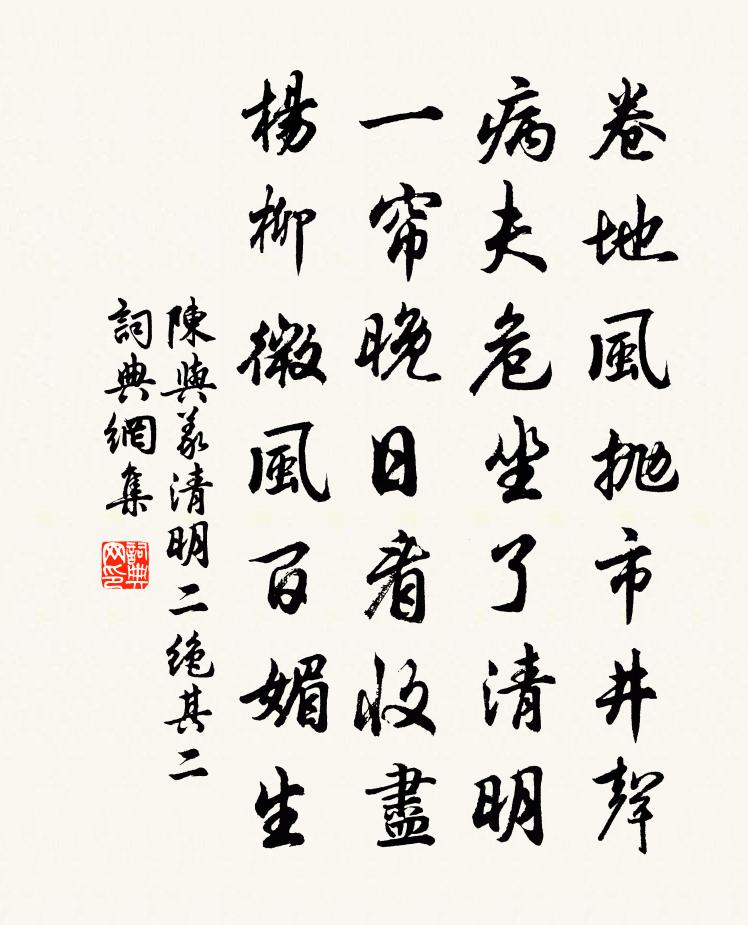 卷地風抛市井聲
病夫危坐了清明
一帘晚日看收盡
楊柳微風百媚生
陳與義清明二絶其二
詞典網集
詞典网印